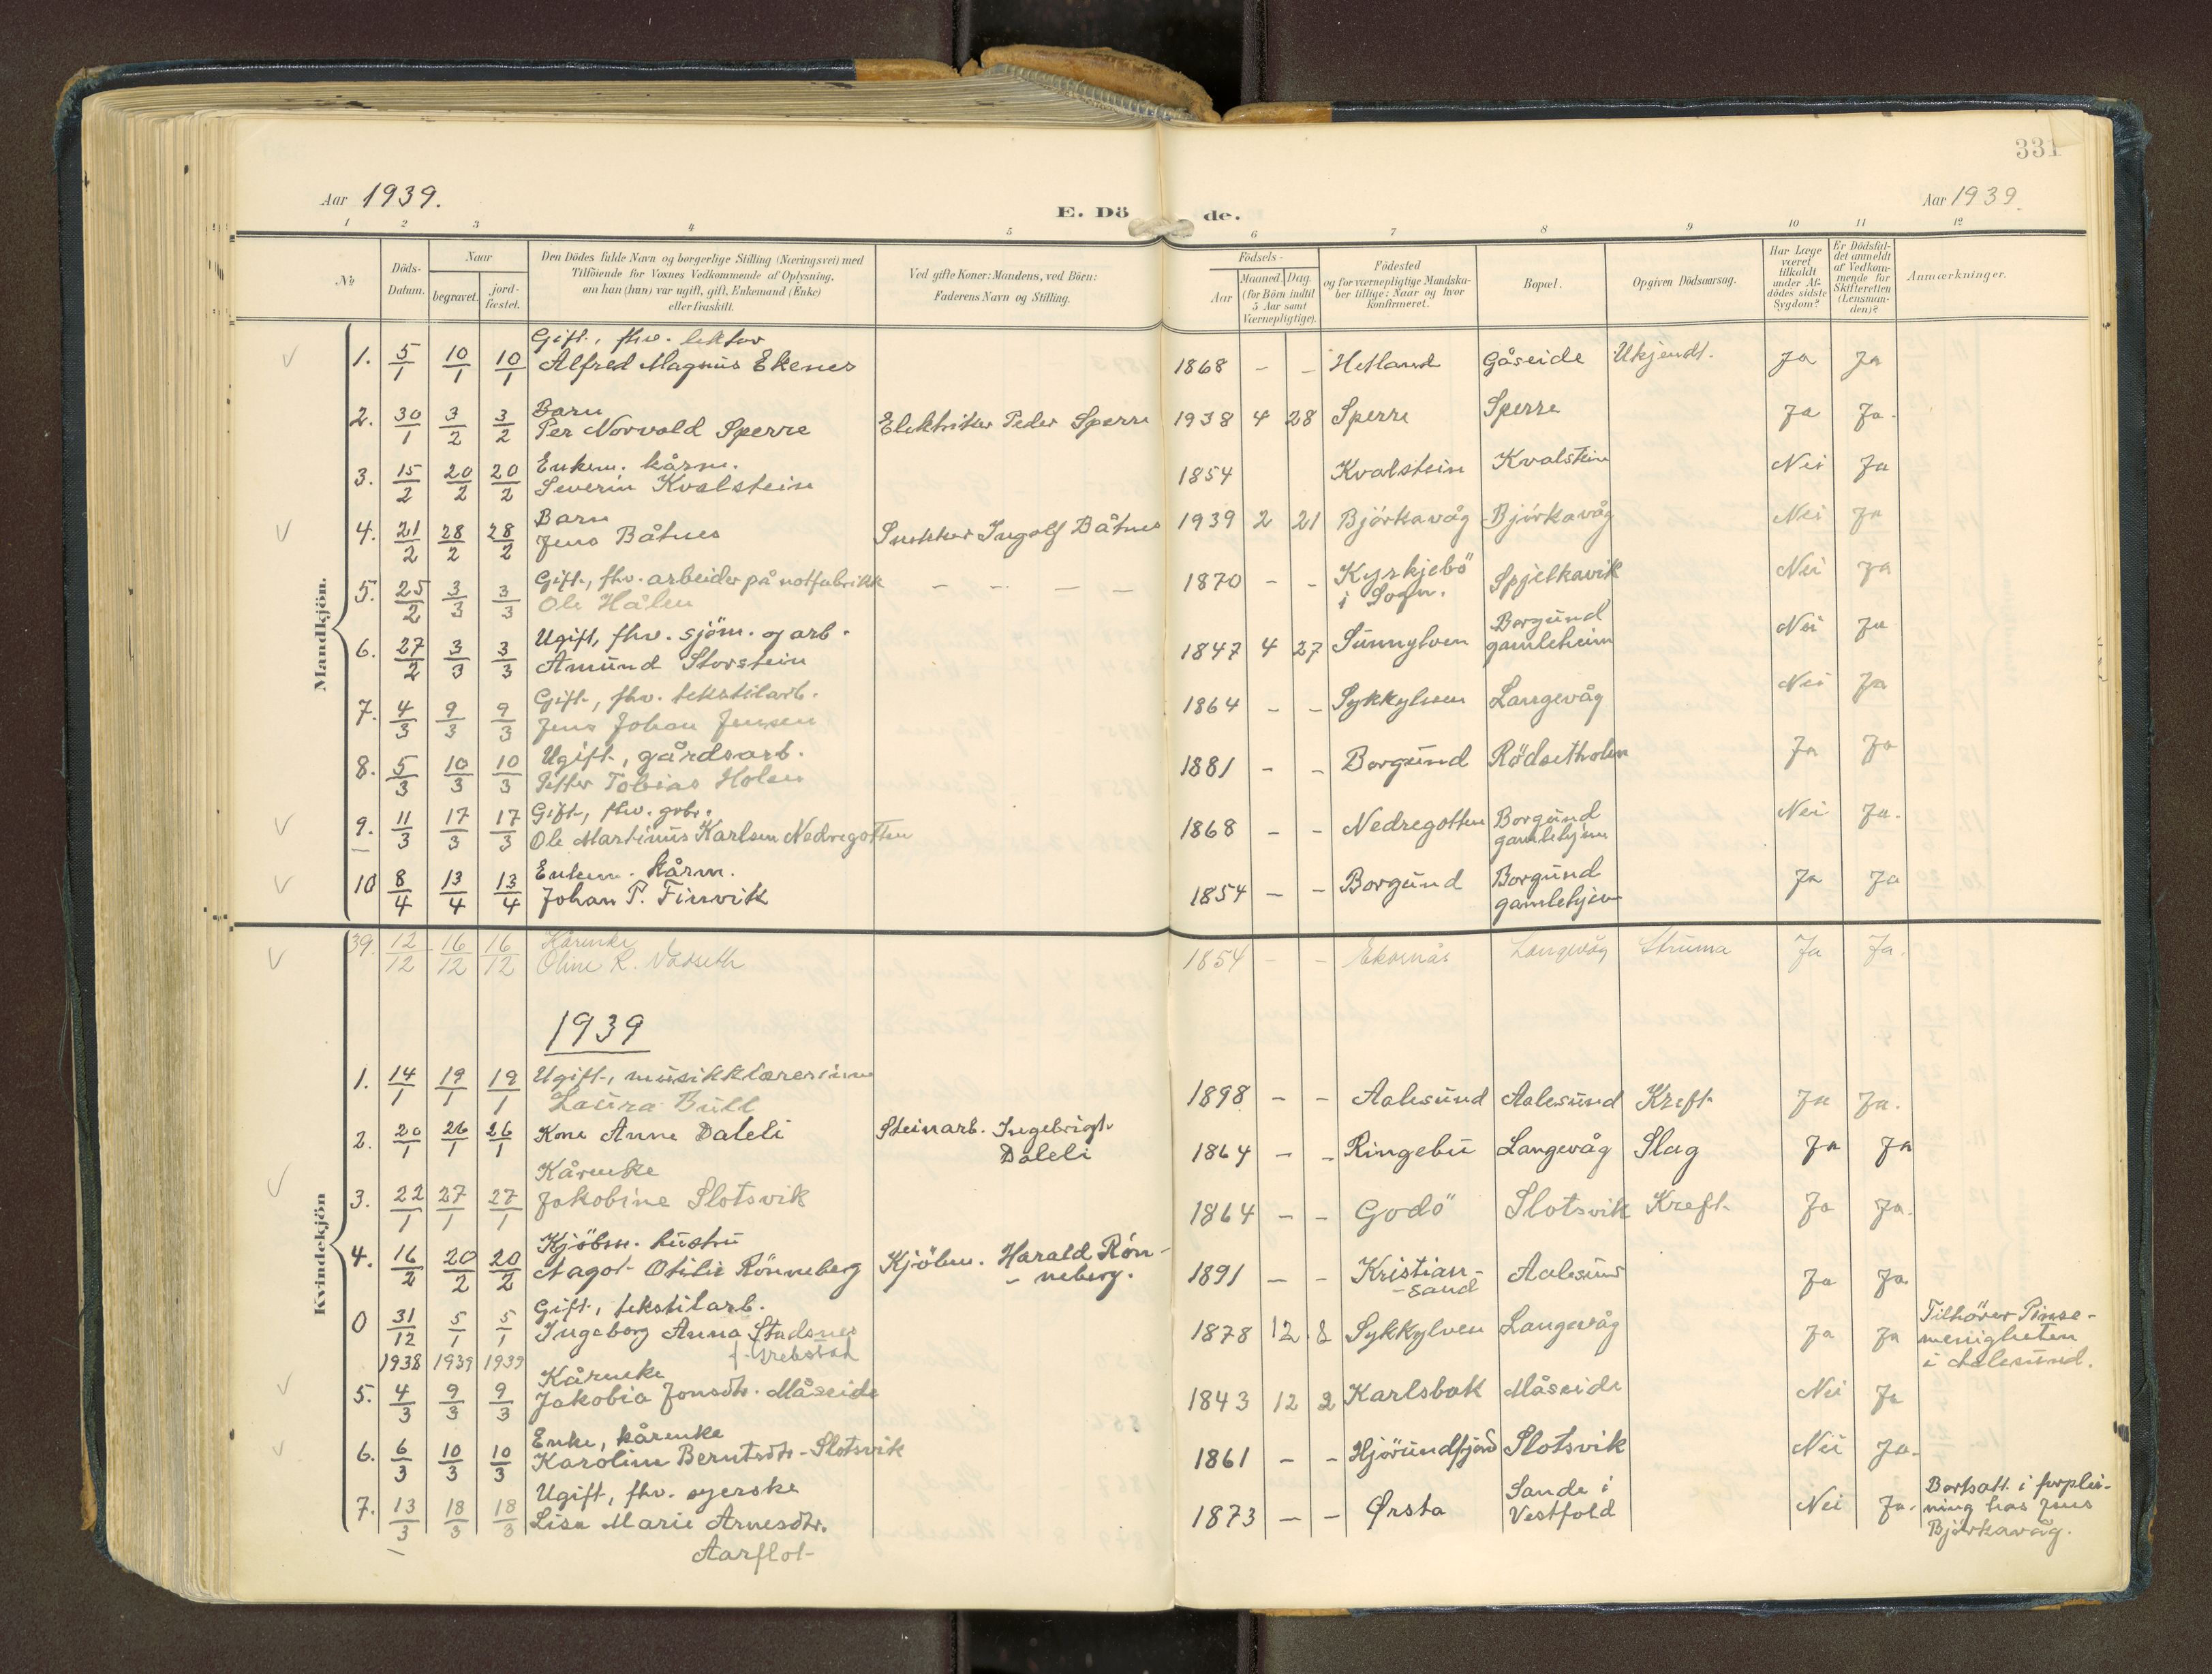 331
Aar 1939.
E. Dö de.
Aar 1939.
1 2 3 4 5 6 7 8 9 10 11 12
No
Döds-Datum.
Naar
begravet.
jord-fæstet.
Den Dödes fulde Navn og borgerlige Stilling (Næringsvei) med
Tilföiende for Voxnes Vedkommende af Oplysning,
om han (hun) var ugift, gift, Enkemand (Enke)
eller fraskilt.
Ved gifte Koner: Mandens, ved Börn:
Faderens Navn og Stilling.
Födsels-
Aar
Maaned. Dag.
(for Börn indtil
5 Aar samt
Værnepligtige).
Födested
og for værnepligtige Mandska-
ber tillige: Naar og hvor
konfirmeret.
Bopæl.
Opgiven Dödsaarsag.
Har Læge
været
tilkaldt
under Af-
dödes sidste
Sygdom?
Er Dödsfal-
det anmeldt
af Vedkom-
mende for
Skifteretten
(Lensman-
den)?
Anmærkninger.
Mandkjön.
Gift, fhv. lektor
1. 5/1 10/1 10/1 Alfred Magnus Ekenes 1868 - - Hetland Gåseide Ukjendt. Ja Ja
Barn
2. 30/1 3/2 3/2 Per Norvald Sperre Elektriker Peder Sperre 1938 4 28 Sperre Sperre Ja Ja.
Enkem. kårm.
3. 15/2 20/2 20/2 Severin Kvalstein 1854 Kvalstein Kvalstein Nei Ja
Barn
4. 21/2 28/2 28/2 Jens Båtnes Snekker Ingolf Båtnes 1939 2 21 Björkavåg Björkavåg Nei Ja
Gift, fhv. arbeider på notfabrikk
5. 25/2 3/3 3/3 Ole Hålen - - - - 1870 - - Kyrkjebö i Sogn. Spjelkavik Nei Ja
Ugift, fhv. sjöm. og arb.
6. 27/2 3/3 3/3 Amund Storstein 1847 4 27 Sunnylven Borgund gamleheim Nei Ja
Gift, fhv. tekstilarb.
7. 4/3 9/3 9/3 Jens Johan Jensen 1864 - - Sykkylven Langevåg Nei Ja
Ugift, gårdsarb.
8. 5/3 10/3 10/3 Petter Tobias Holen 1881 - - Borgund Rödsetholen Ja Ja
Gift, fhv. gbr.
9. 11/3 17/3 17/3 Ole Martinus Karlsen Nedregotten 1868 - - Nedregotten Borgund gamlehjem Nei Ja.
Enkem. kårm.
10 8/4 13/4 13/4 Johan P. Finvik 1854 - - Borgund Borgund gamlehjem Ja Ja
Kårenke
39. 12/12 16/12 16/12 Oline R. Vasseth 1854 - - Ekornås Langevåg Struma Ja Ja.
1939
Kvindekjön
Ugift, musikklærerinne
1. 14/1 19/1 19/1 Laura Bull 1898 - - Aalesund Aalesund Kreft Ja Ja.
2. 20/1 26/1 26/1 Kone Anne Daleli Steinarb. Ingebrigt Daleli 1864 - - Ringebu Langevåg Slag Ja Ja
Kårenke
3. 22/1 27/1 27/1 Jakobine Slotsvik 1864 - - Godö Slotsvik Kreft Ja Ja.
Kjöbm. hustru
4. 16/2 20/2 20/2 Nagot Otilie Rönneberg Kjöbm. Harald Rön- -neberg. 1891 - - Kristian- -sand Aalesund Ja Ja
Gift, tekstilarb.
0 31/12 1938 5/1 1939 5/1 1939 Ingeborg Anna Stadsnes 1878 12 8 Sykkylven Langevåg Ja Ja Tilhörer Pinse-
menigheten
i Aalesund.
f. Grebstad
Kårenke
5. 4/3 9/3 9/3 Jakobia Jonsdtr. Måseide 1843 12 2 Karlsbak Måseide Nei Ja
Enke, kårenke
6. 6/3 10/3 10/3 Karoline Berntsdtr. Slotsvik 1861 - - Hjörundfjord Slotsvik Nei Ja.
Ugift, fhv. syerske
7. 13/3 18/3 18/3 Lisa Marie Arnesdtr. 1873 - - Ørsta Sande i Vestfold Nei Ja. Bortsatt i forplei-
ning hos Jens
Björkavåg.
Aarflot